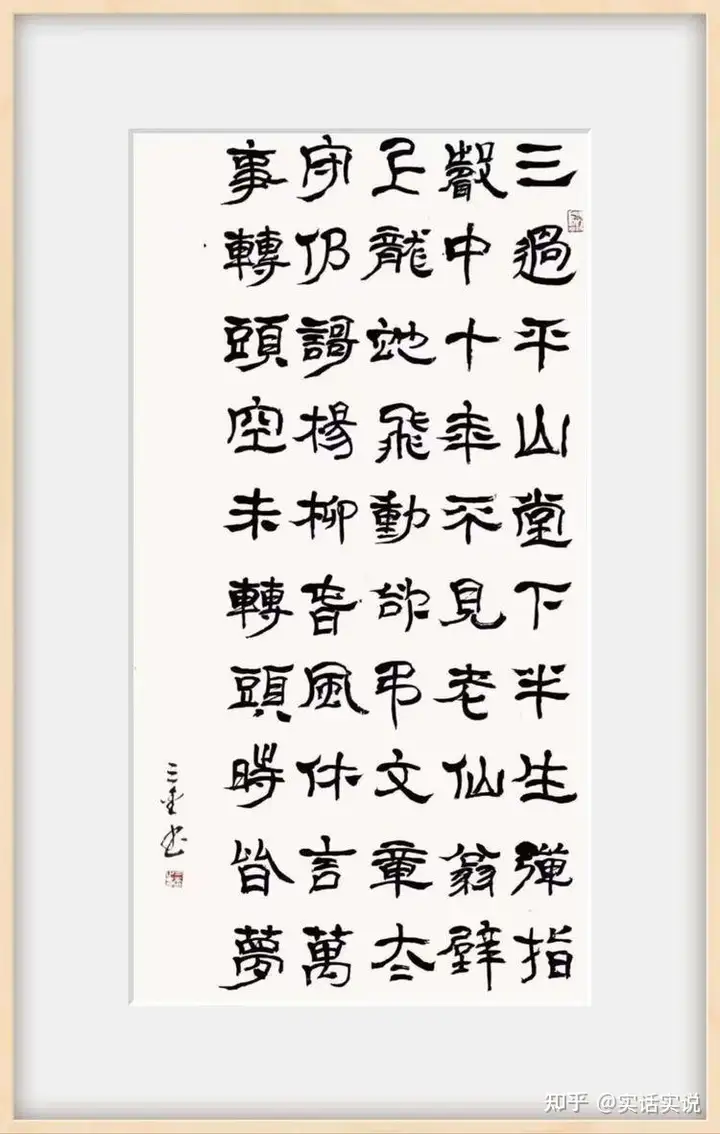 三過平山堂下半生彈指
聲中十年不見老仙翁壁
上龍虵飛動欲弔文章夳
守仍謌楊柳春風休言萬
事轉頭空未轉頭時皆夢
三 书
知乎 @实话实说